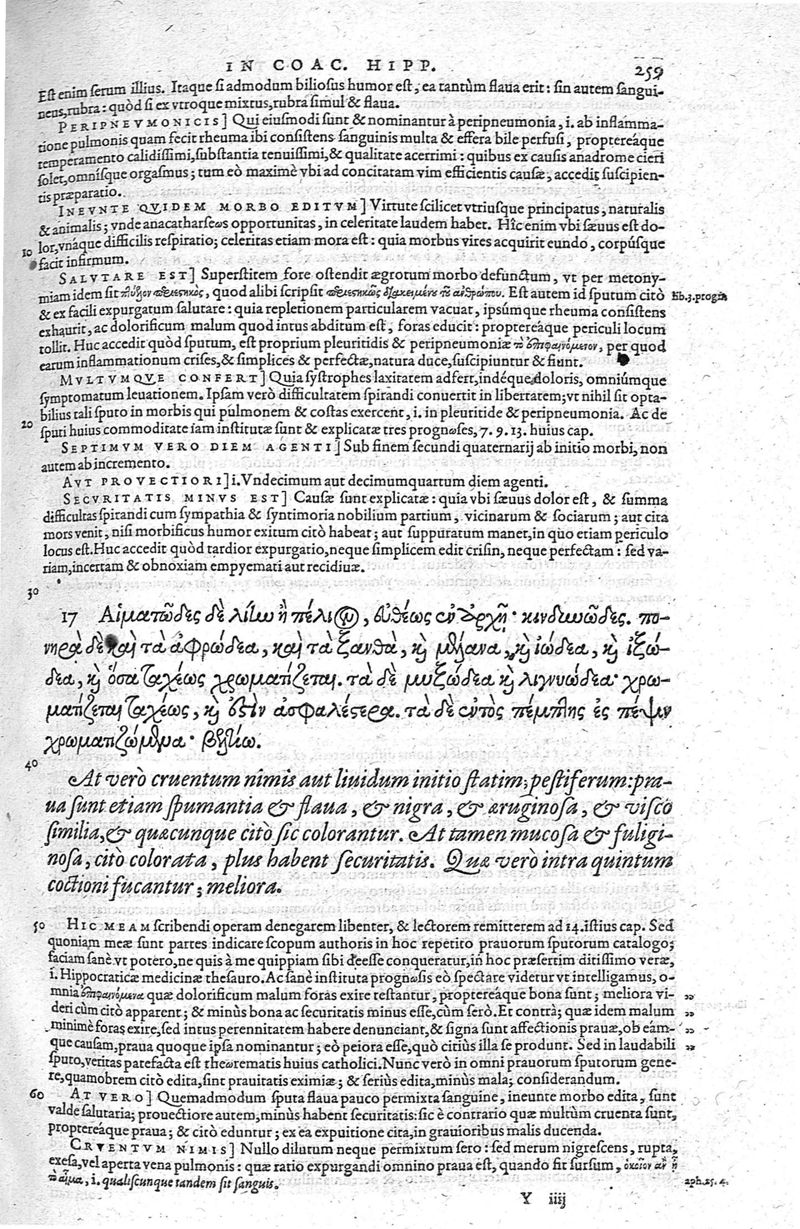 IN COAC. HIPP. 259
Est enim serum illius. Itaque si admodum biliosus humor est, ea tantùm flaua erit: sin autem sangui-
neus, rubra: quòd si ex vtroque mixtus, rubra simul & flaua.
PERIPNEVMONICIS] Qui eiusmodi sunt & nominantur à peripneumonia, i. ab inflamma-
tione pulmonis quam fecit rheuma ibi consistens sanguinis multa & effera bile perfusi, proptereáque
temperamento calidissimi, substantia tenuissimi, & qualitate acerrimi: quibus ex causis anadrome cieri
solet, omnisque orgasmus; tum eò maximè vbi ad concitatam vim efficientis causæ, accedit suscipien-
tis præparatio.
INEVNTE QVIDEM MORBO EDITVM] Virtute scilicet vtriusque principatus, naturalis
& animalis; vnde anacatharseωs opportunitas, in celeritate laudem habet. Hîc enim vbi sæuus est do-
lor, vnáque difficilis respiratio; celeritas etiam mora est: quia morbus vires acquirit eundo, corpúsque
10
facit infirmum.
SALVTARE EST] Superstitem fore ostendit ægrotum morbo defunctum, vt per metony-
miam idem sit, quod alibi scripsit. Est autem id sputum citò lib.3.progn.
& ex facili expurgatum salutare: quia repletionem particularem vacuat, ipsúmque rheuma consistens
exhaurit, ac dolorificum malum quod intus abditum est, foras educit: proptereáque periculi locum
tollit. Huc accedit quód sputum, est proprium pleuritidis & peripneumoniæ τὸ ἐπιφαινόμενον, per quod
earum inflammationum crises, & simplices & perfectæ, natura duce, suscipiuntur & fiunt.
MVLTVMQVE CONFERT] Quia systrophes laxitatem adfert, indéque doloris, omniúmque
symptomatum leuationem. Ipsam verò difficultatem spirandi conuertit in libertatem; vt nihil sit opta-
bilius tali sputo in morbis qui pulmonem & costas exercent, i. in pleuritide & peripneumonia. Ac de
20 sputi huius commoditate iam institutæ sunt & explicatæ tres prognωses, 7. 9. 13. huius cap.
SEPTIMVM VERO DIEM AGENTI] Sub finem secundi quaternarij ab initio morbi, non
autem ab incremento.
AVT PROVECTIORI] i. Vndecimum aut decimumquartum diem agenti.
SECVRITATIS MINVS EST] Causæ sunt explicatæ: quia vbi sæuus dolor est, & summa
difficultas spirandi cum sympathia & syntimoria nobilium partium, vicinarum & sociarum; aut cita
mors venit, nisi morbificus humor exitum citò habeat; aut suppuratum manet, in quo etiam periculo
locus est. Huc accedit quòd tardior expurgatio, neque simplicem edit crisin, neque perfectam: sed va-
riam, incertam & obnoxiam empyemati aut recidiuæ.
30
17 Αἱματῶδες δὲ λίην ἢ πέλιον, εὐθέως ἐν ἀρχῇ· κινδυνῶδες. πο-
νηρὰ δὲ καὶ τὰ ἀφρώδεα, καὶ τὰ ξανθὰ, καὶ μέλανα, καὶ ἰώδεα, καὶ ἰξώ-
δεα, καὶ ὅσα ταχέως χρωματίζεται. τὰ δὲ μυξώδεα καὶ λιγνυώδεα· χρω-
ματίζεται ταχέως, καὶ ἐστὶν ἀσφαλέστερα. τὰ δὲ ἐντὸς πέμπτης ἐς πέψιν
χρωματιζόμενα· βελτίω.
40
At verò cruentum nimis aut liuidum initio statim; pestiferum: pra-
ua sunt etiam spumantia & flaua, & nigra, & æruginosa, & visco
similia, & quæcunque citò sic colorantur. At tamen mucosa & fuligi-
nosa, citò colorata, plus habent securitatis. Quæ verò intra quintum
coctioni fucantur; meliora.
50 HIC MEAM scribendi operam denegarem libenter, & lectorem remitterem ad 14. istius cap. Sed
quoniam meæ sunt partes indicare scopum authoris in hoc repetito prauorum sputorum catalogo;
faciam sanè vt potero, ne quis à me quippiam sibi deesse conqueratur, in hoc præsertim ditissimo veræ,
i. Hippocraticæ medicinæ thesauro. Ac sanè instituta prognωsis eò spectare videtur vt intelligamus, o-
mnia ἐπιφαινόμενα quæ dolorificum malum foras exire testantur, proptereáque bona sunt; meliora vi- „
deri cùm citò apparent; & minùs bona ac securitatis minus esse, cùm serò. Et contrà; quæ idem malum „
minimè foras exire, sed intus perennitatem habere denunciant, & signa sunt affectionis prauæ, ob eam- „
que causam, praua quoque ipsa nominantur; eò peiora esse, quò citiùs illa se produnt. Sed in laudabili „
sputo, veritas patefacta est theωrematis huius catholici. Nunc verò in omni prauorum sputorum gene-
re, quamobrem citò edita, sint prauitatis eximiæ; & seriùs edita, minùs mala; considerandum.
60 AT VERO] Quemadmodum sputa flaua pauco permixta sanguine, ineunte morbo edita, sunt
valde salutaria; prouectiore autem, minùs habent securitatis: sic è contrario quæ multùm cruenta sunt,
proptereáque praua; & citò eduntur; ex ea expuitione cita, in grauioribus malis ducenda.
CRVENTVM NIMIS] Nullo dilutum neque permixtum sero: sed merum nigrescens, rupta,
exesa, vel aperta vena pulmonis: quæ ratio expurgandi omnino praua est, quando fit sursum, ὁκοῖον ἂν ᾖ
τὸ αἷμα, i. qualiscunque tandem sit sanguis. aph.25.4.
Y iiij